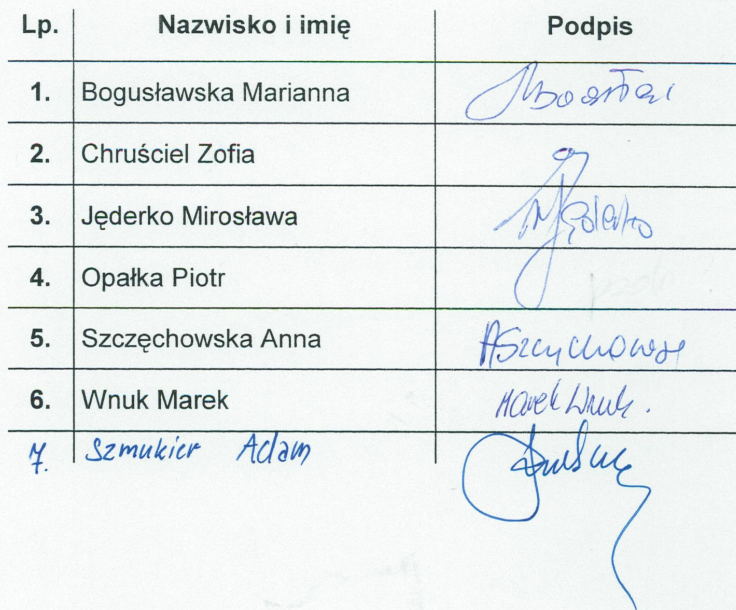 Lp. Nazwisko i imię Podpis
1. Bogusławska Marianna
2. Chruściel Zofia
3. Jęderko Mirosława
4. Opałka Piotr
5. Szczęchowska Anna
6. Wnuk Marek Marek Wnuk.
7. Szmukier Adam